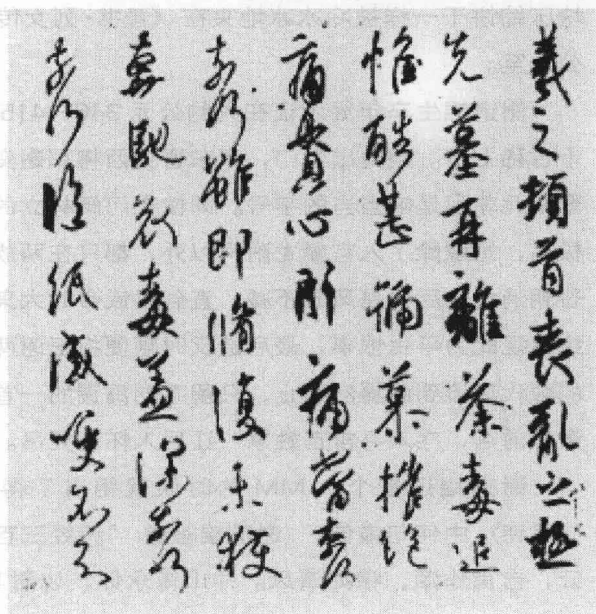 羲之頓首喪亂之極
先墓再離荼毒追
惟酷甚號慕摧絶
痛貫心肝痛當奈何
奈何雖即脩復未獲
奔馳哀毒益深奈何
奈何臨紙感哽不知